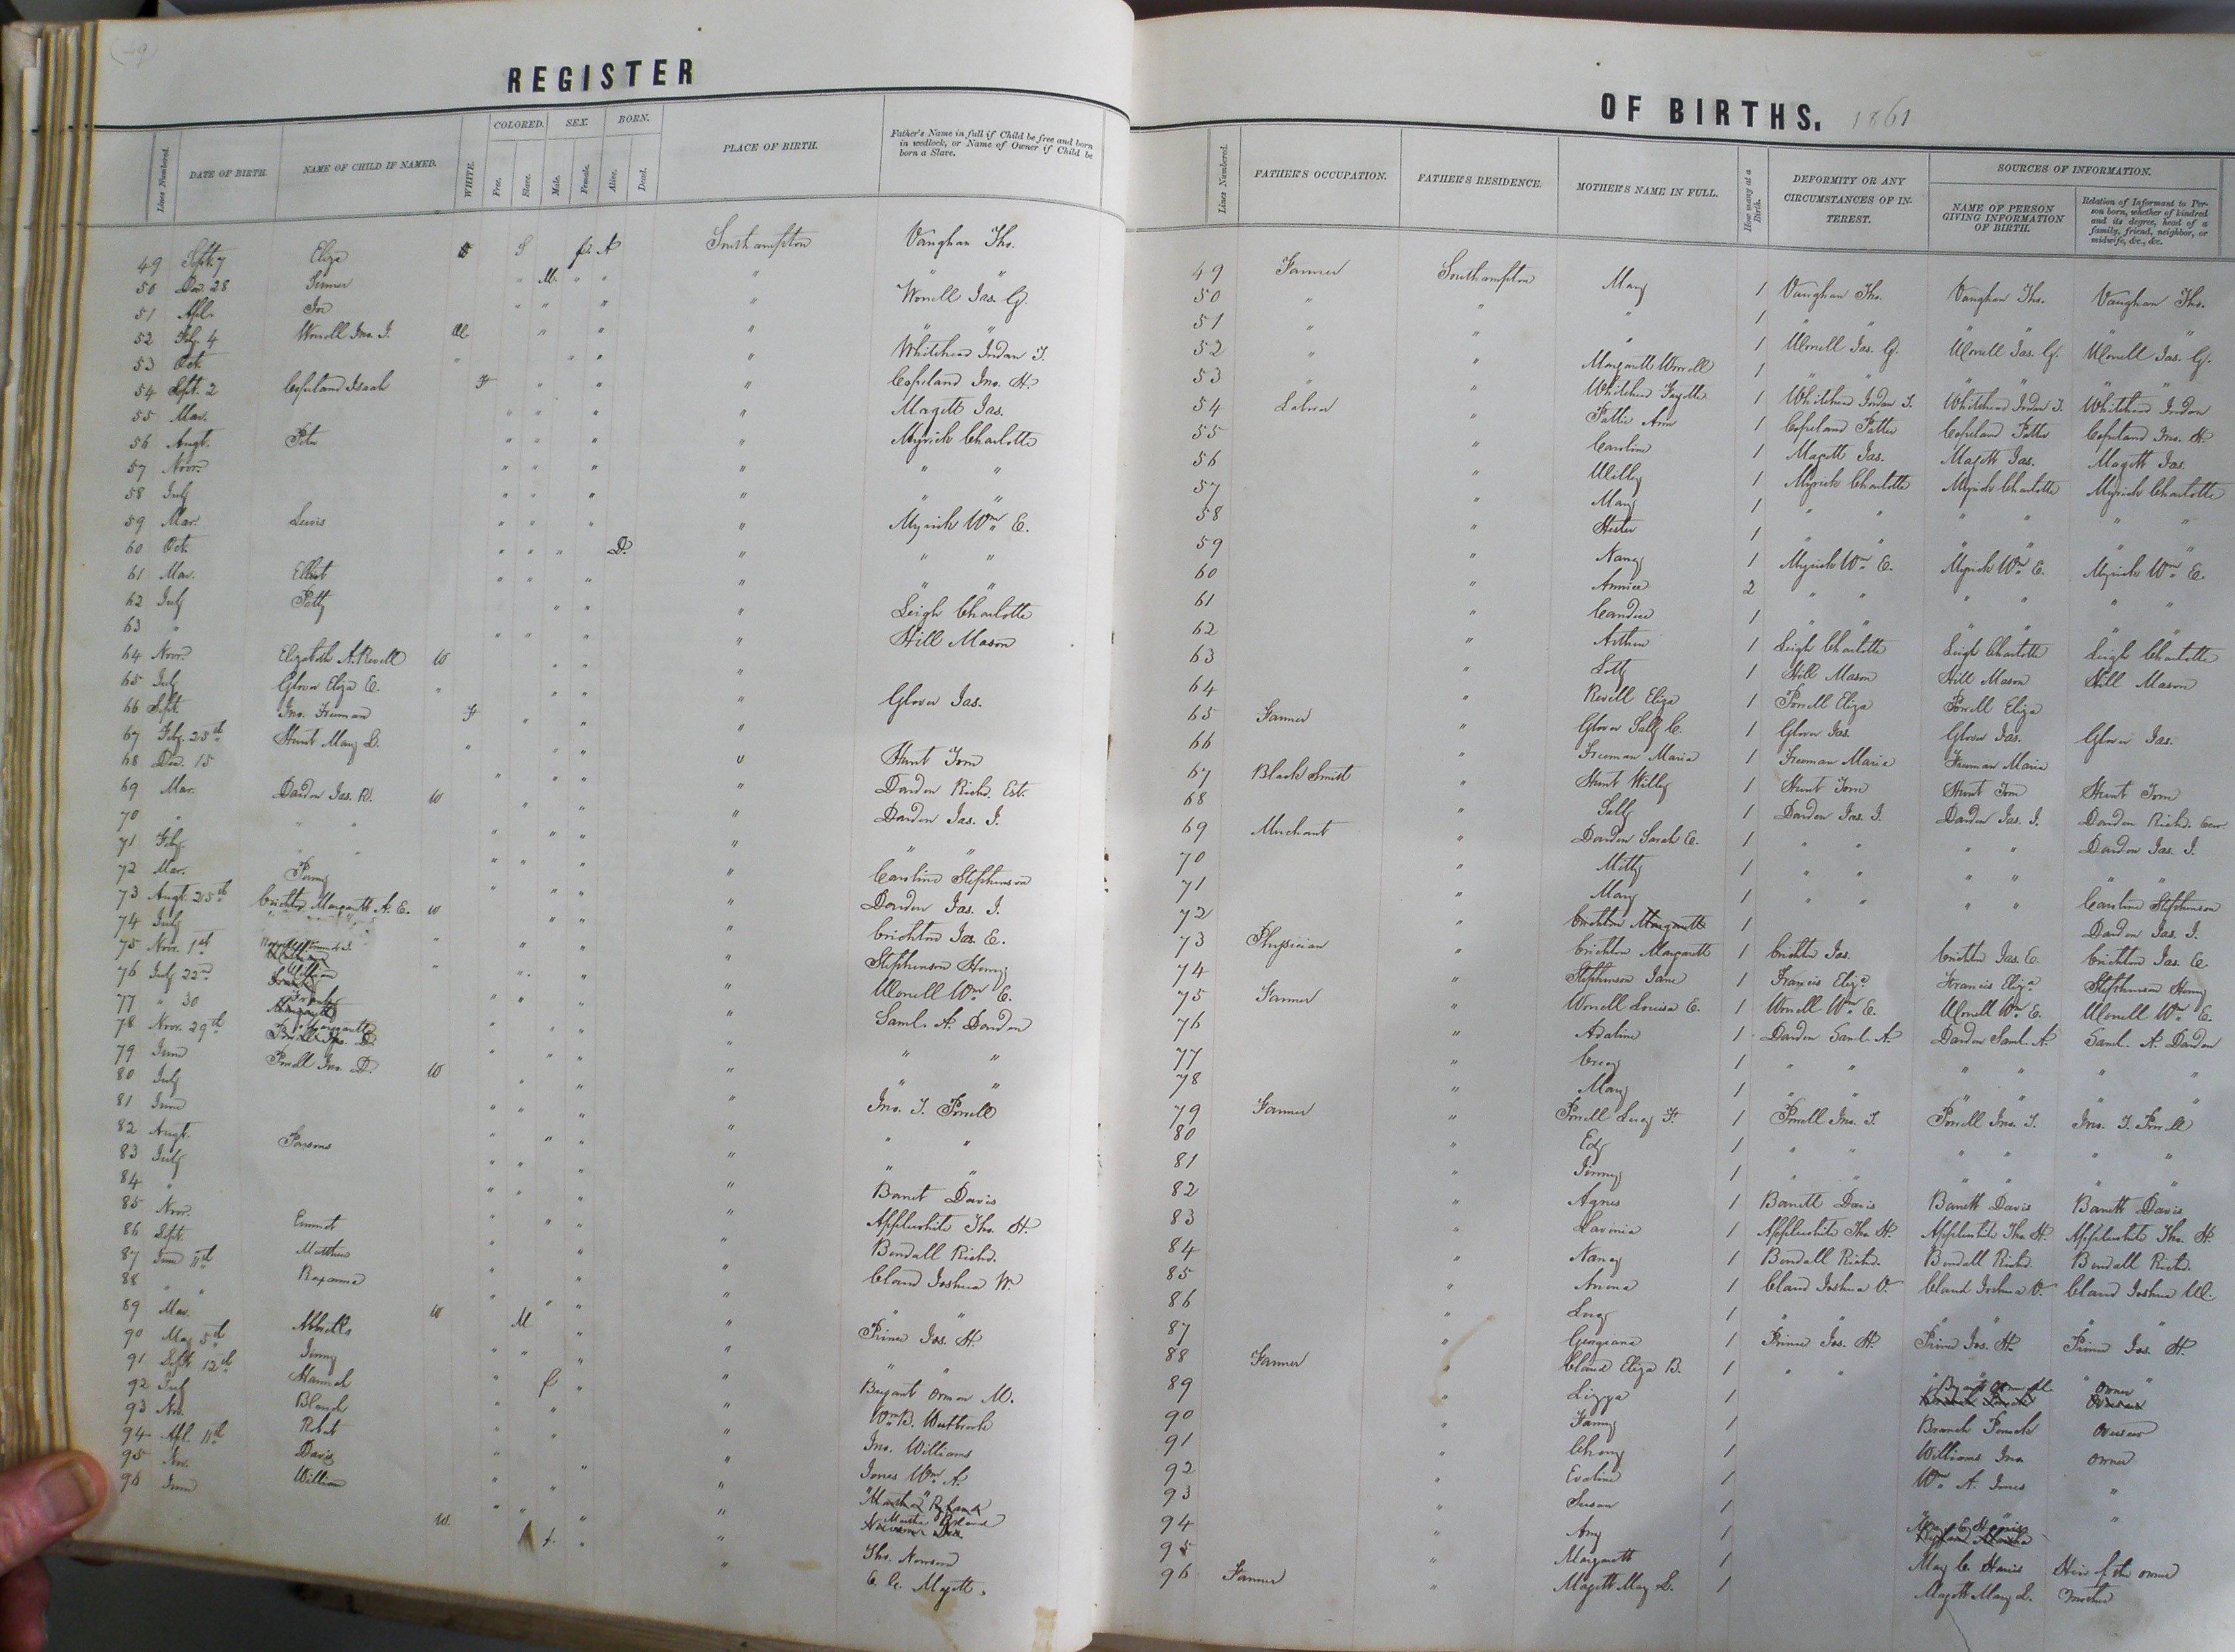 REGISTER
COLORED. SEX. BORN.
Lines Numbered. DATE OF BIRTH. NAME OF CHILD IF NAMED. WHITE. Free. Slave. Male. Female. Alive. Dead. PLACE OF BIRTH.
Father's Name in full if Child be free and born
in wedlock, or Name of Owner if Child be
born a Slave.
49 Sept. 7 Eliza S A Southampton Vaughan Ths.
50 Dec. 28 M. " " " " "
51 Apl. " " " " Worrell Jas. G.
52 Feb. 4 Worrell Jno. J. W " " " " "
53 Oct. " " " " Whitehead Jordan T.
54 Sept. 2 Copeland Isaah F " " " Copeland Jno. H.
55 Mar. " " " " Magett Jas.
56 Augt. Peter " " " " Myrick Charlotte
57 Novr. " " " " " "
58 July " " " " " "
59 Mar. Lewis " " " " Myrick Wm. E.
60 Oct. " " " D. " " "
61 Mar. Elliot " " " " " "
62 July Patty " " " Leigh Charlotte
63 " " " " " Hill Mason
64 Novr. Elizabeth A. Revell W " " "
65 July Glover Eliza E. " " " " Glover Jas.
66 Sept. Jno. Freeman F " " "
67 Feby. 25th Hunt Mary L. " " " " Hunt Tom
68 Dec. 15 " " " " Darden Richd. Est.
69 Mar. Darden Jas. R. W " " " Darden Jas. J.
70 " " " " " " " " "
71 Feby. " " " " Caroline Stephenson
72 Mar. " " " Darden Jas. J.
73 Augt. 25th Crichton Margarett A. E. W " " " Crichton Jas. E.
74 July " " " Stephenson Henry
75 Novr. 1st " " " " Worrell Wm. E.
76 July 22nd William " " " Saml. A. Darden
77 " 30 Frank " " " " "
78 Novr. 29th Margarett " " " " "
79 June Powell Jno. D. W " " " Jno. T. Powell
80 July " " " " " "
81 June " " " " "
82 Augt. " " " Barrett Davis
83 July Parsons " " " Applewhite Ths. H.
84 " " " " Bendall Richd.
85 Novr. " " " Cland Joshua W.
86 Sept. Emmet " " " " "
87 June 11th Matthew " " " Prince Jos. H.
88 " " Roxanna W M " " " "
89 Mar. " " " Bryant Orman M.
90 May 5th " " Wm. B. Westbrook
91 Sept. 12th Jenny f " " Jno. Williams
92 July Hannah " " Jones Wm. A.
93 Nov. Blanch " "
94 Apl. 11th Robert " " Martha
95 Nov. Davis " " Ths. Newsom
96 June William W. " " Magett
OF BIRTHS. 1861
Lines Numbered. FATHER'S OCCUPATION. FATHER'S RESIDENCE. MOTHER'S NAME IN FULL. How many at a Birth. DEFORMITY OR ANY
CIRCUMSTANCES OF IN-
TEREST.
SOURCES OF INFORMATION.
NAME OF PERSON
GIVING INFORMATION
OF BIRTH.
Relation of Informant to Per-
son born, whether of kindred
and its degree, head of a
family, friend, neighbor, or
midwife, &c., &c.
49 Farmer Southampton Mary 1 Vaughan Ths. Vaughan Ths. Vaughan Ths.
50 " " " 1 " " " " " "
51 " " 1 Worrell Jas. G. Worrell Jas. G. Worrell Jas. G.
52 " " Margarett Worrell 1 " " "
53 " " Whitehead 1 Whitehead Jordan T. Whitehead Jordan T. Whitehead Jordan
54 Labor " Pattie Ann 1 Copeland Pattie Copeland Pattie Copeland Jno. H.
55 " Caroline 1 Magett Jas. Magett Jas. Magett Jas.
56 " Milly 1 Myrick Charlotte Myrick Charlotte Myrick Charlotte
57 " Mary 1 " " " " " "
58 " Hester 1 " " " " " "
59 " Nancy 1 Myrick Wm. E. Myrick Wm. E. Myrick Wm. E.
60 " Annica 2 " " " " " "
61 " Candice 1 " " " " " "
62 " 1 Leigh Charlotte Leigh Charlotte Leigh Charlotte
63 " Lotty 1 Hill Mason Hill Mason Hill Mason
64 " Revell Eliza 1 Powell Eliza Powell Eliza
65 Farmer " Glover Sally C. 1 Glover Jas. Glover Jas. Glover Jas.
66 " Freeman Maria 1 Freeman Maria Freeman Maria
67 Black Smith " Hunt Willey 1 Hunt Tom Hunt Tom Hunt Tom
68 " Sally 1 Darden Jas. J. Darden Jas. J. Darden Richd.
69 Merchant " Darden Sarah E. 1 " " " " Darden Jas. J.
70 " Mitty 1 " " " " " "
71 " Mary 1 " " " " Caroline Stephenson
72 " Crichton Margarett 1 Darden Jas. J.
73 Physician " Crichton Margarett 1 Crichton Jas. Crichton Jas. E. Crichton Jas. E.
74 " Stephenson Jane 1 Francis Eliza Francis Eliza Stephenson Henry
75 Farmer " Worrell Louisa E. 1 Worrell Wm. E. Worrell Wm. E. Worrell Wm. E.
76 " Adaline 1 Darden Saml. A. Darden Saml. A. Saml. A. Darden
77 " 1 " " " " " "
78 " Mary 1 " " " " " "
79 Farmer " Powell Lucy F. 1 Powell Jno. T. Powell Jno. T. Jno. T. Powell
80 " Edy 1 " " " " " "
81 " Jinny 1 " " " " " "
82 " Agnes 1 Barrett Davis Barrett Davis Barrett Davis
83 " Lavinia 1 Applewhite Ths. H. Applewhite Ths. H. Applewhite Ths. H.
84 " Nancy 1 Bendall Richd. Bendall Richd. Bendall Richd.
85 " 1 Cland Joshua Cland Joshua Cland Joshua W.
86 " Lucy 1 " " " " " "
87 " Georgiana 1 Prince Jos. H. Prince Jos. H. Prince Jos. H.
88 Farmer " Cland Eliza B. 1 " " " " " "
89 " Lizza 1 owner
90 " Fanny 1 Branch overseer
91 " 1 Williams Jno. owner
92 " Evaline 1 Wm. A. Jones "
93 " Susan 1 "
94 " Amy 1
95 " Margarett 1 Mary E. Harris owner
96 Farmer " Magett Mary L. 1 Magett Mary L. mother